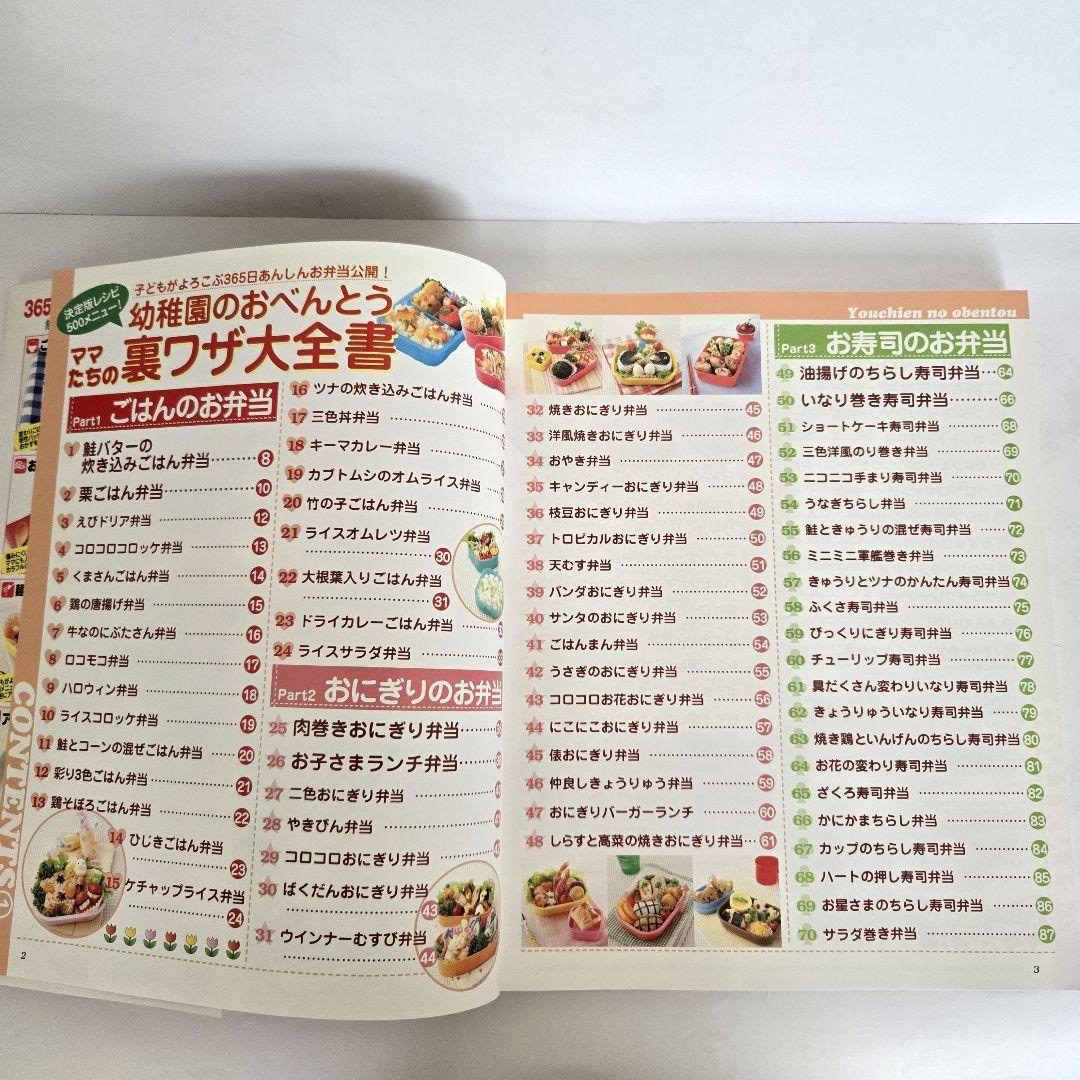 子どもがよろこぶ365日あんしんお弁当公開！
決定版レシピ
500メニュー！
幼稚園のおべんとう
ママたちの裏ワザ大全書
Part1 ごはんのお弁当
1 鮭バターの
炊き込みごはん弁当 8
2 栗ごはん弁当 10
3 えびドリア弁当 12
4 コロコロコロッケ弁当 13
5 くまさんごはん弁当 14
6 鶏の唐揚げ弁当 15
7 牛なのにぶたさん弁当 16
8 ロコモコ弁当 17
9 ハロウィン弁当 18
10 ライスコロッケ弁当 19
11 鮭とコーンの混ぜごはん弁当 20
12 彩り3色ごはん弁当 21
13 鶏そぼろごはん弁当 22
14 ひじきごはん弁当
23
15 ケチャップライス弁当
24
16 ツナの炊き込みごはん弁当
17 三色丼弁当
18 キーマカレー弁当
19 カブトムシのオムライス弁当
20 竹の子ごはん弁当
21 ライスオムレツ弁当
30
22 大根葉入りごはん弁当
31
23 ドライカレーごはん弁当
24 ライスサラダ弁当
Part2 おにぎりのお弁当
25 肉巻きおにぎり弁当
26 お子さまランチ弁当
27 二色おにぎり弁当
28 やきびん弁当
29 コロコロおにぎり弁当
30 ばくだんおにぎり弁当
43
31 ウインナーむすび弁当
44
CONTENTS 1
2
365
Youchien no obentou
32 焼きおにぎり弁当 45
33 洋風焼きおにぎり弁当 46
34 おやき弁当 47
35 キャンディーおにぎり弁当 48
36 枝豆おにぎり弁当 49
37 トロピカルおにぎり弁当 50
38 天むす弁当 51
39 パンダおにぎり弁当 52
40 サンタのおにぎり弁当 53
41 ごはんまん弁当 54
42 うさぎのおにぎり弁当 55
43 コロコロお花おにぎり弁当 56
44 にこにこおにぎり弁当 57
45 俵おにぎり弁当 58
46 仲良しきょうりゅう弁当 59
47 おにぎりバーガーランチ 60
48 しらすと高菜の焼きおにぎり弁当 61
Part3 お寿司のお弁当
49 油揚げのちらし寿司弁当 64
50 いなり巻き寿司弁当 66
51 ショートケーキ寿司弁当 68
52 三色洋風のり巻き弁当 69
53 ニコニコ手まり寿司弁当 70
54 うなぎちらし弁当 71
55 鮭ときゅうりの混ぜ寿司弁当 72
56 ミニミニ軍艦巻き弁当 73
57 きゅうりとツナのかんたん寿司弁当 74
58 ふくさ寿司弁当 75
59 びっくりにぎり寿司弁当 76
60 チューリップ寿司弁当 77
61 具だくさん変わりいなり寿司弁当 78
62 きょうりゅういなり寿司弁当 79
63 焼き鶏といんげんのちらし寿司弁当 80
64 お花の変わり寿司弁当 81
65 ざくろ寿司弁当 82
66 かにかまちらし弁当 83
67 カップのちらし寿司弁当 84
68 ハートの押し寿司弁当 85
69 お星さまのちらし寿司弁当 86
70 サラダ巻き弁当 87
3